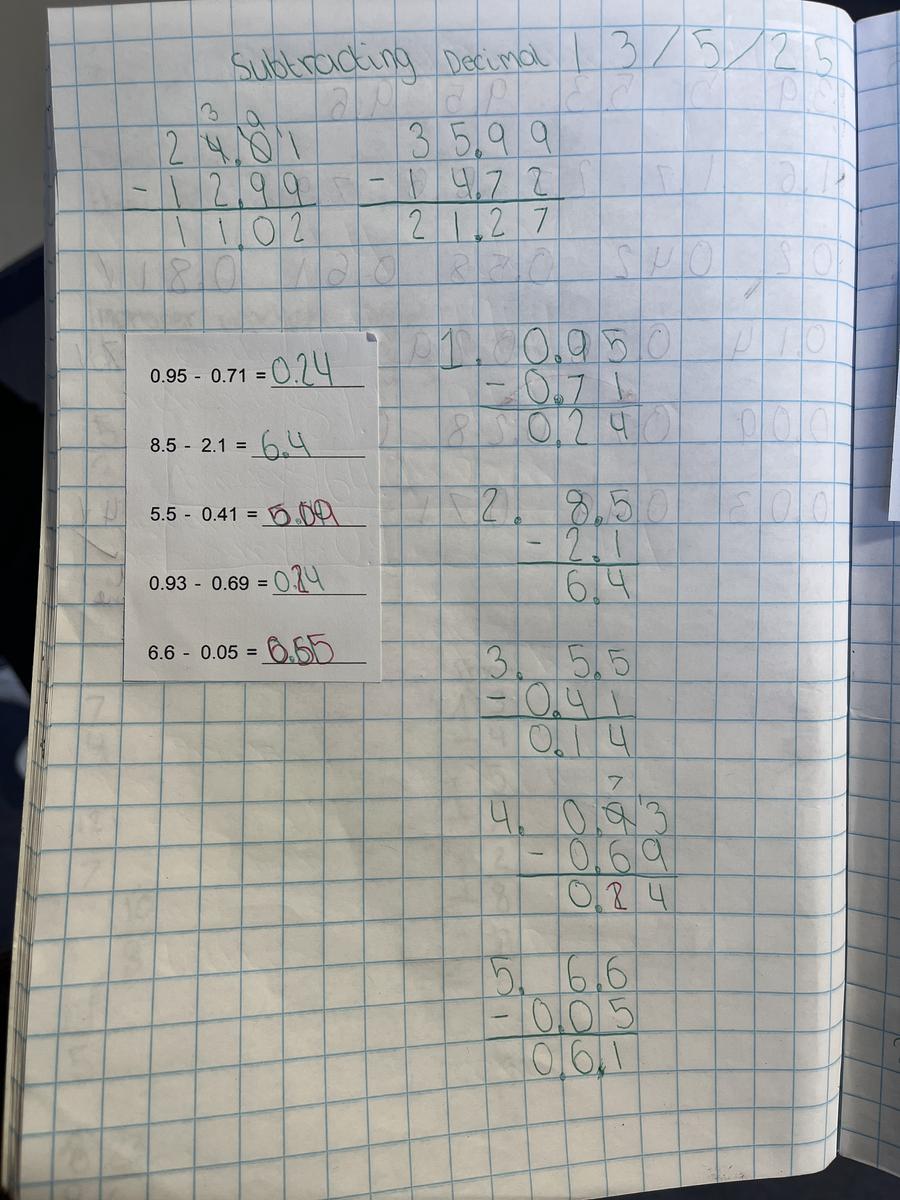 Subtracting Decimal 13/5/25
3 9
24.01 35.99
-12.99 -14.72
11.02 21.27
0.95 - 0.71 = 0.24
8.5 - 2.1 = 6.4
5.5 - 0.41 = 5.09
0.93 - 0.69 = 0.24
6.6 - 0.05 = 6.55
1. 0.95
-0.71
0.24
2. 8.5
-2.1
6.4
3. 5.5
-0.41
0.14
7
4. 0.93
-0.69
0.24
5. 6.6
-0.05
0.6.1